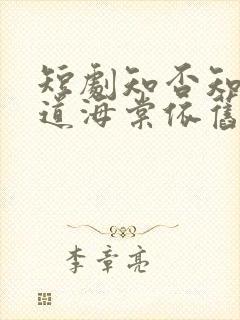 短劇知否知
道海棠依舊
李章亮